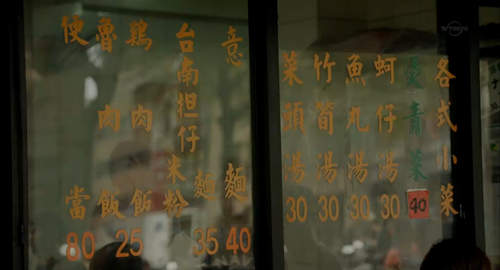 各式小菜
燙青菜 40
蚵仔湯 30
魚丸湯 30
竹筍湯 30
菜頭湯 30
意麵 40
台南担仔麵米粉 35
鷄肉飯
魯肉飯 25
便當 80